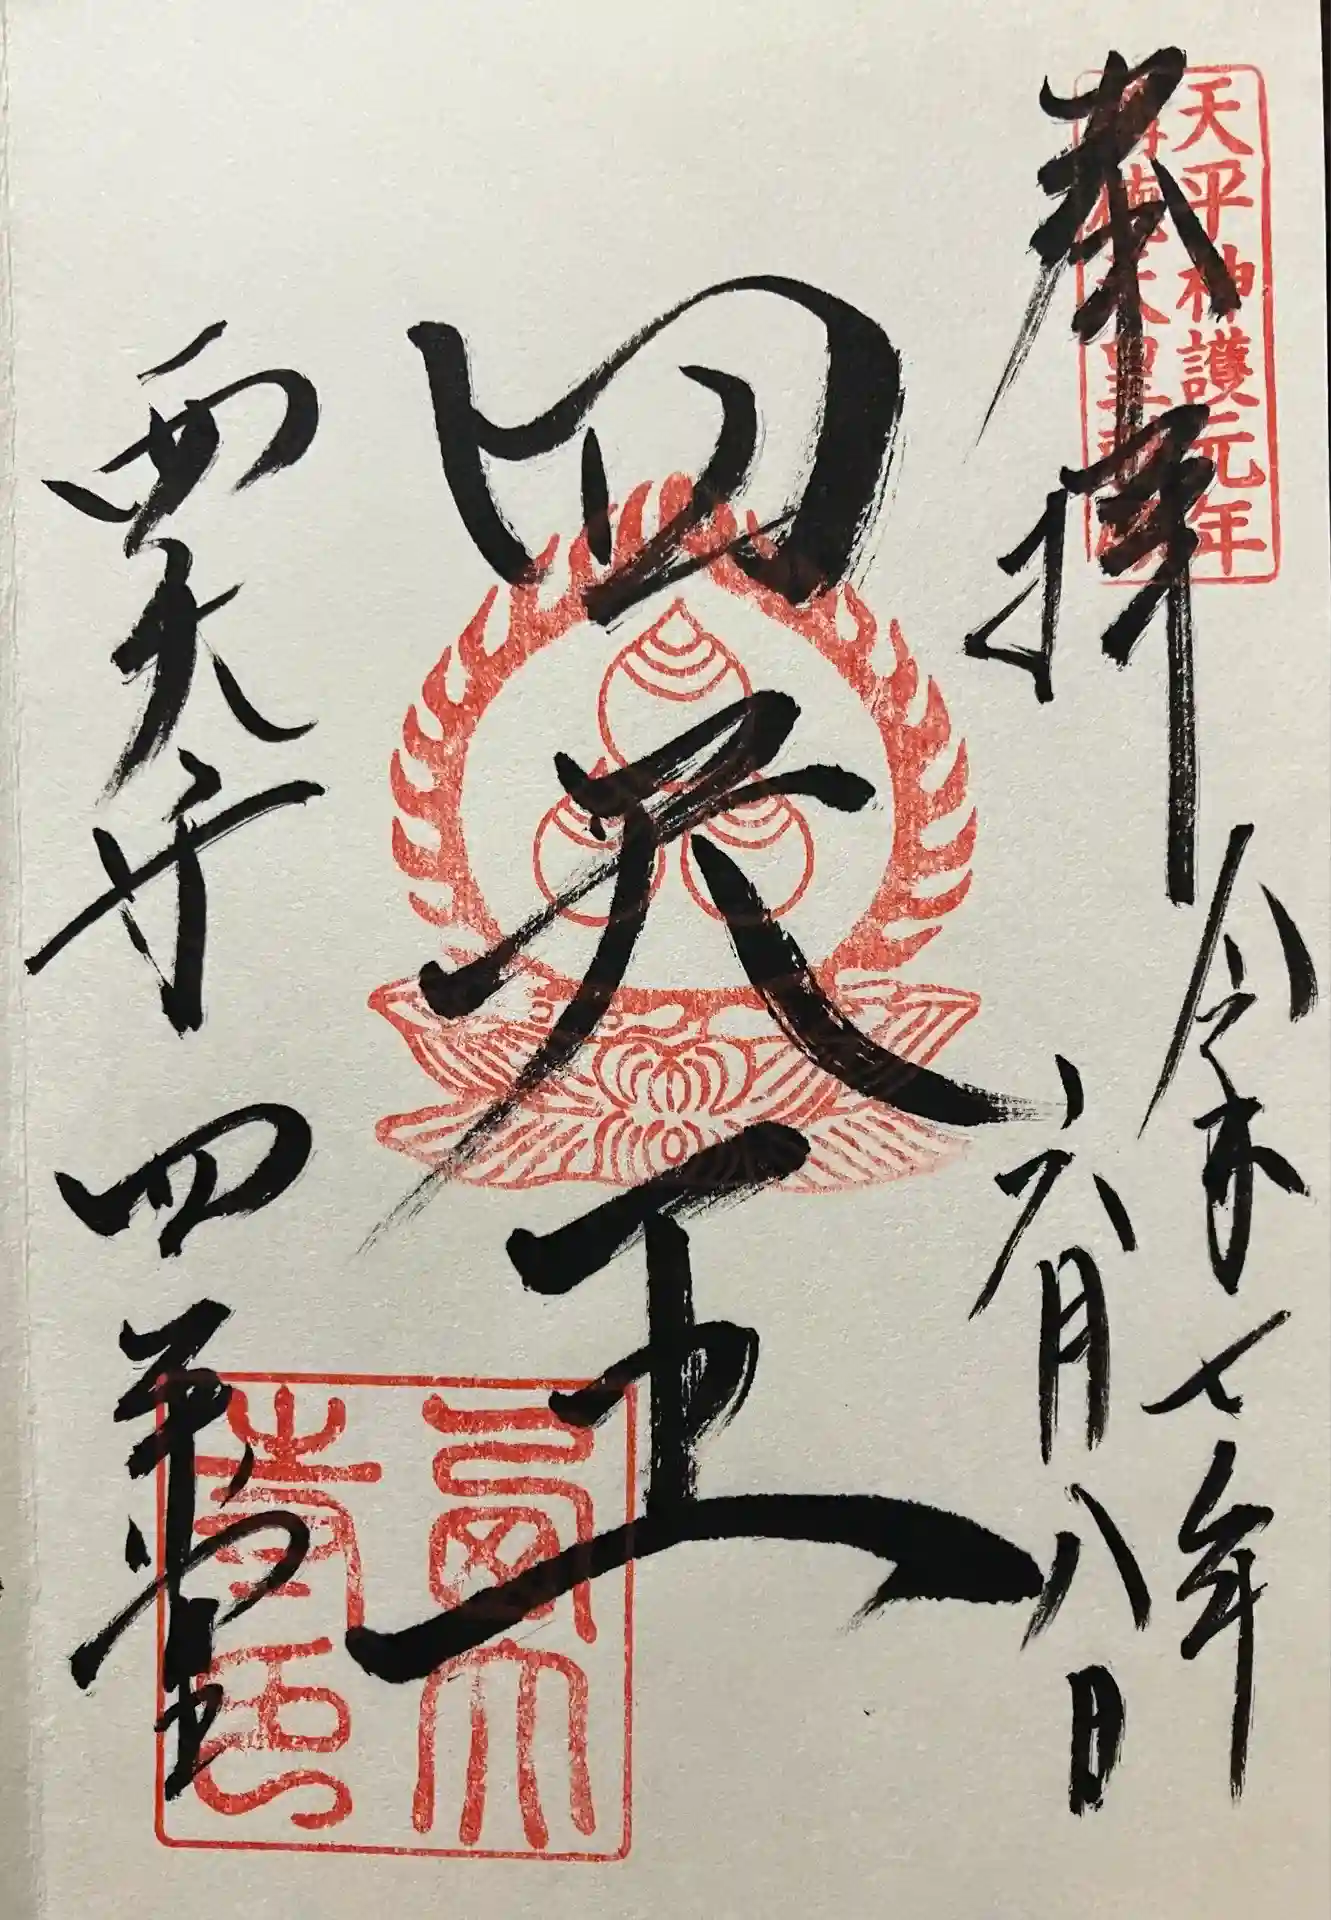 奉拝
天平神護元年
称徳天皇
令和七年
六月八日
四天王
西大寺 四王堂
西大寺印